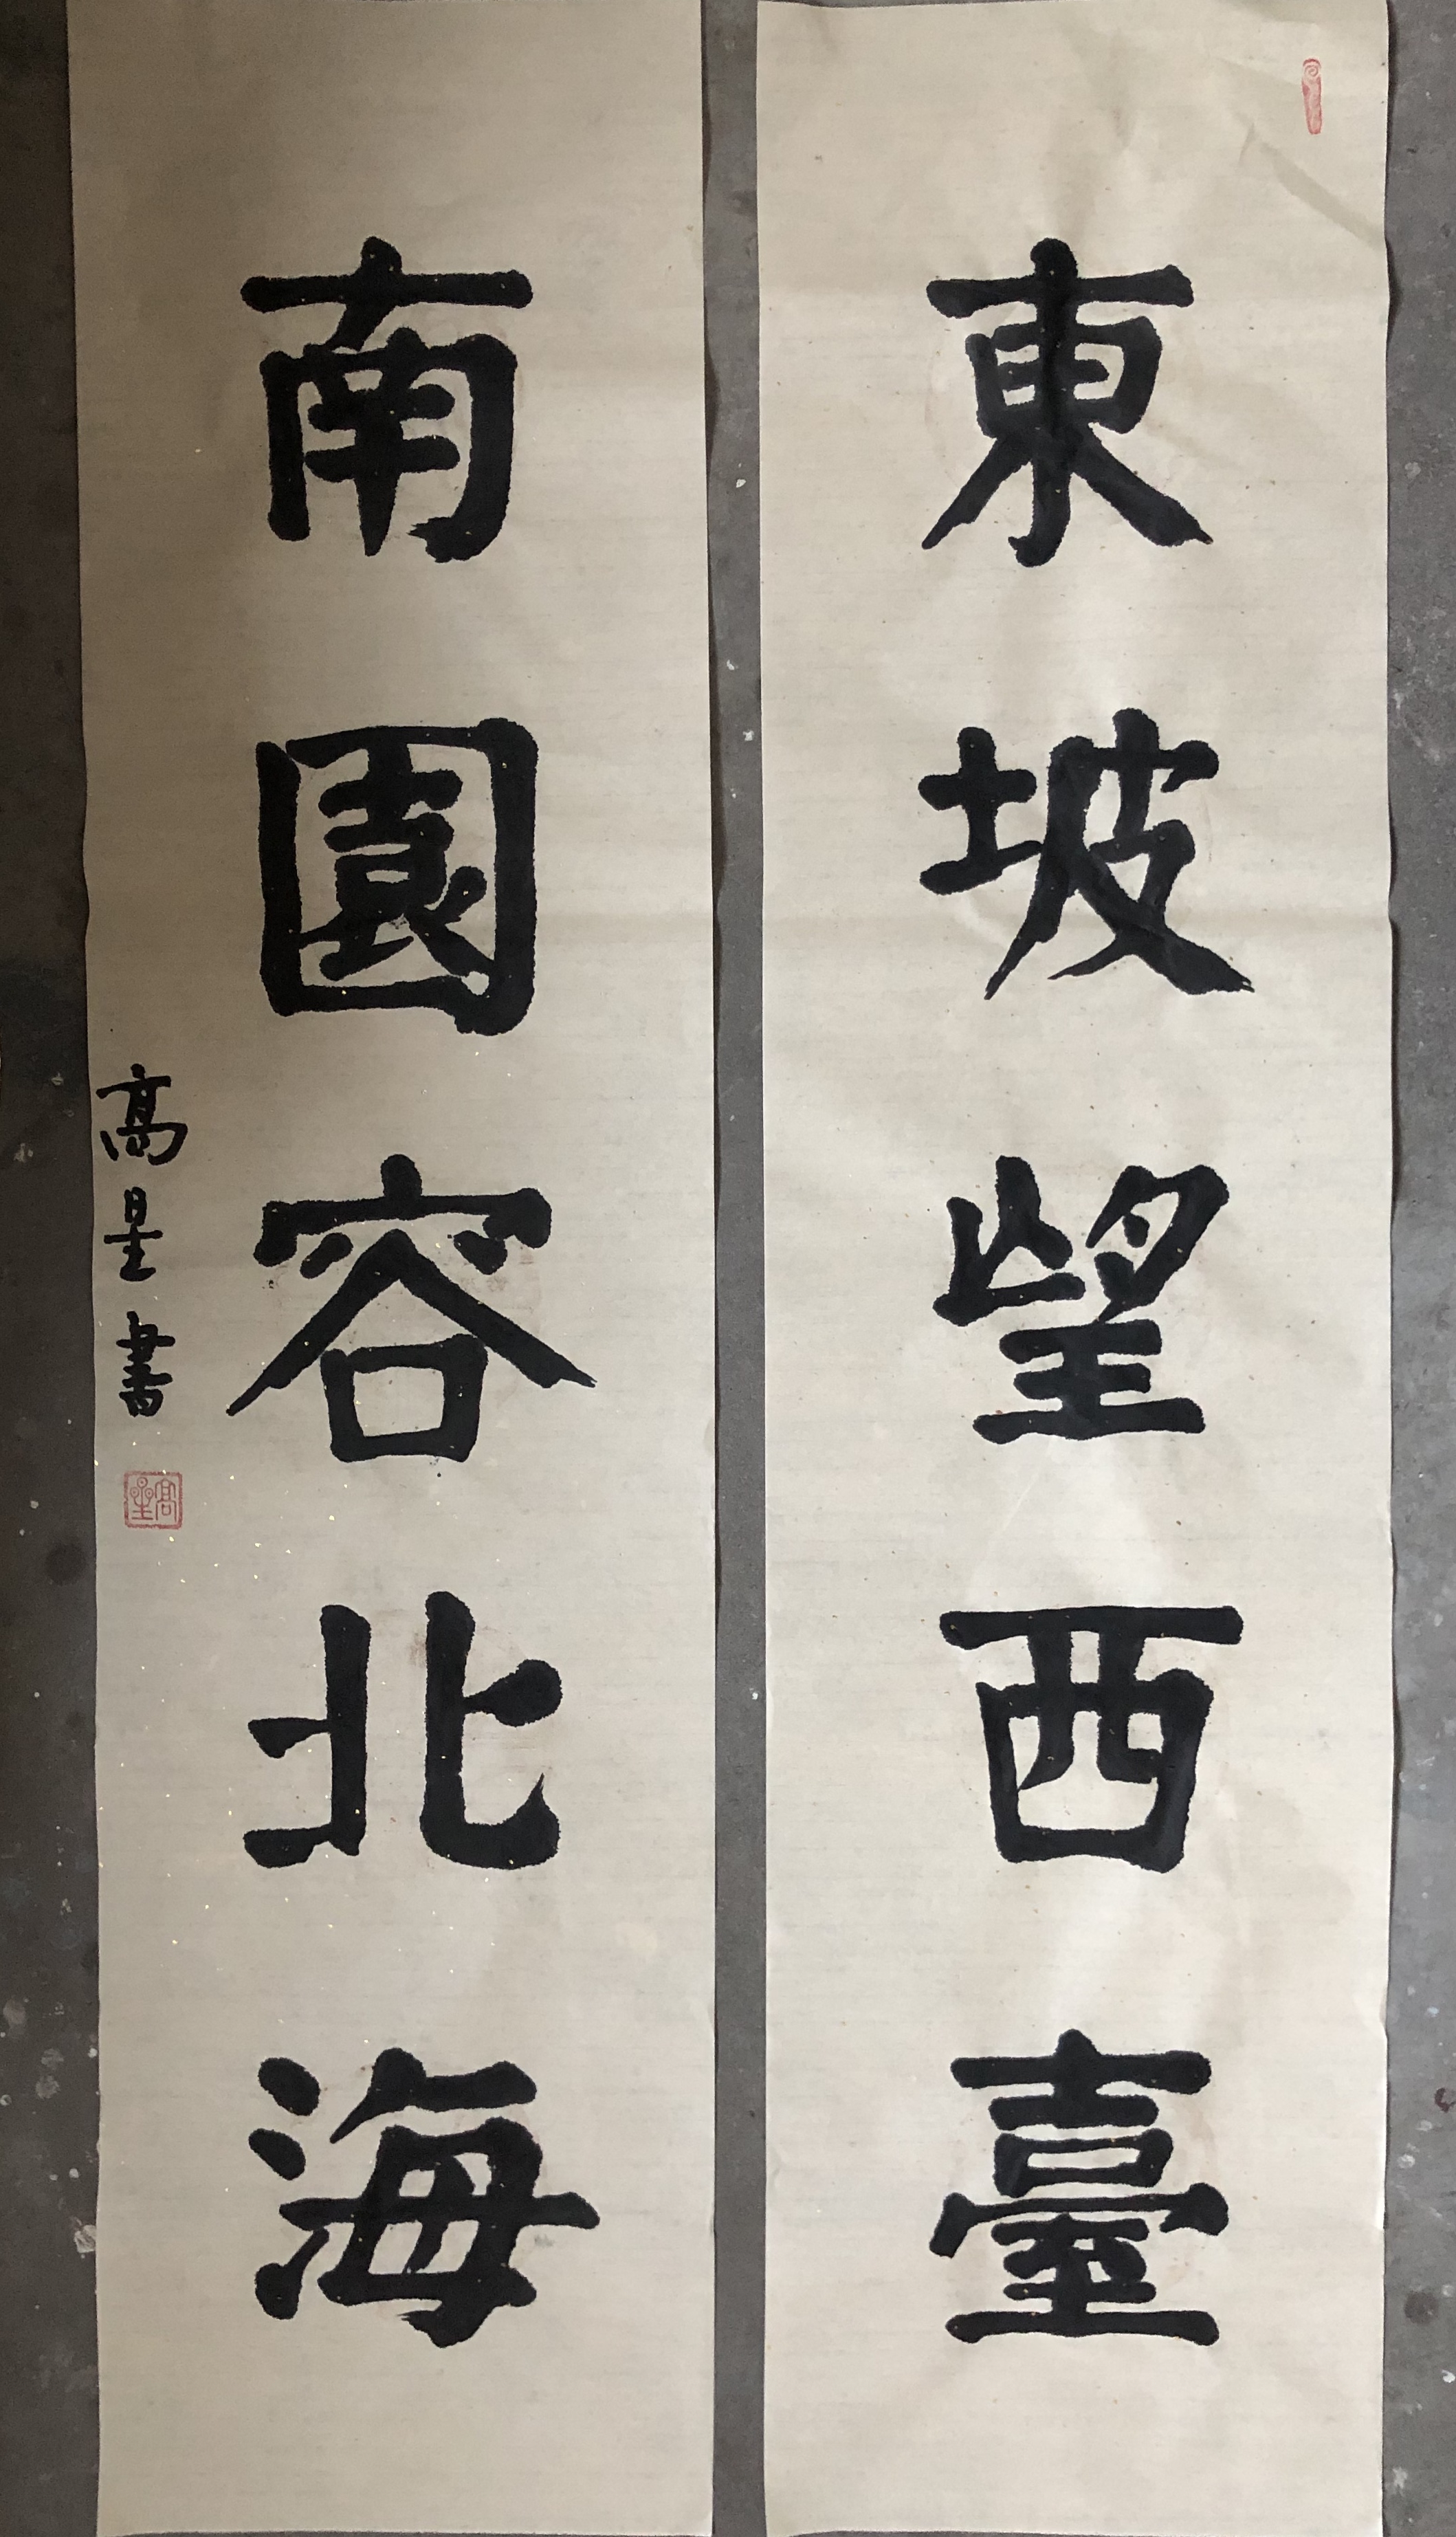 東坡望西臺
南園容北海
高星書
高星